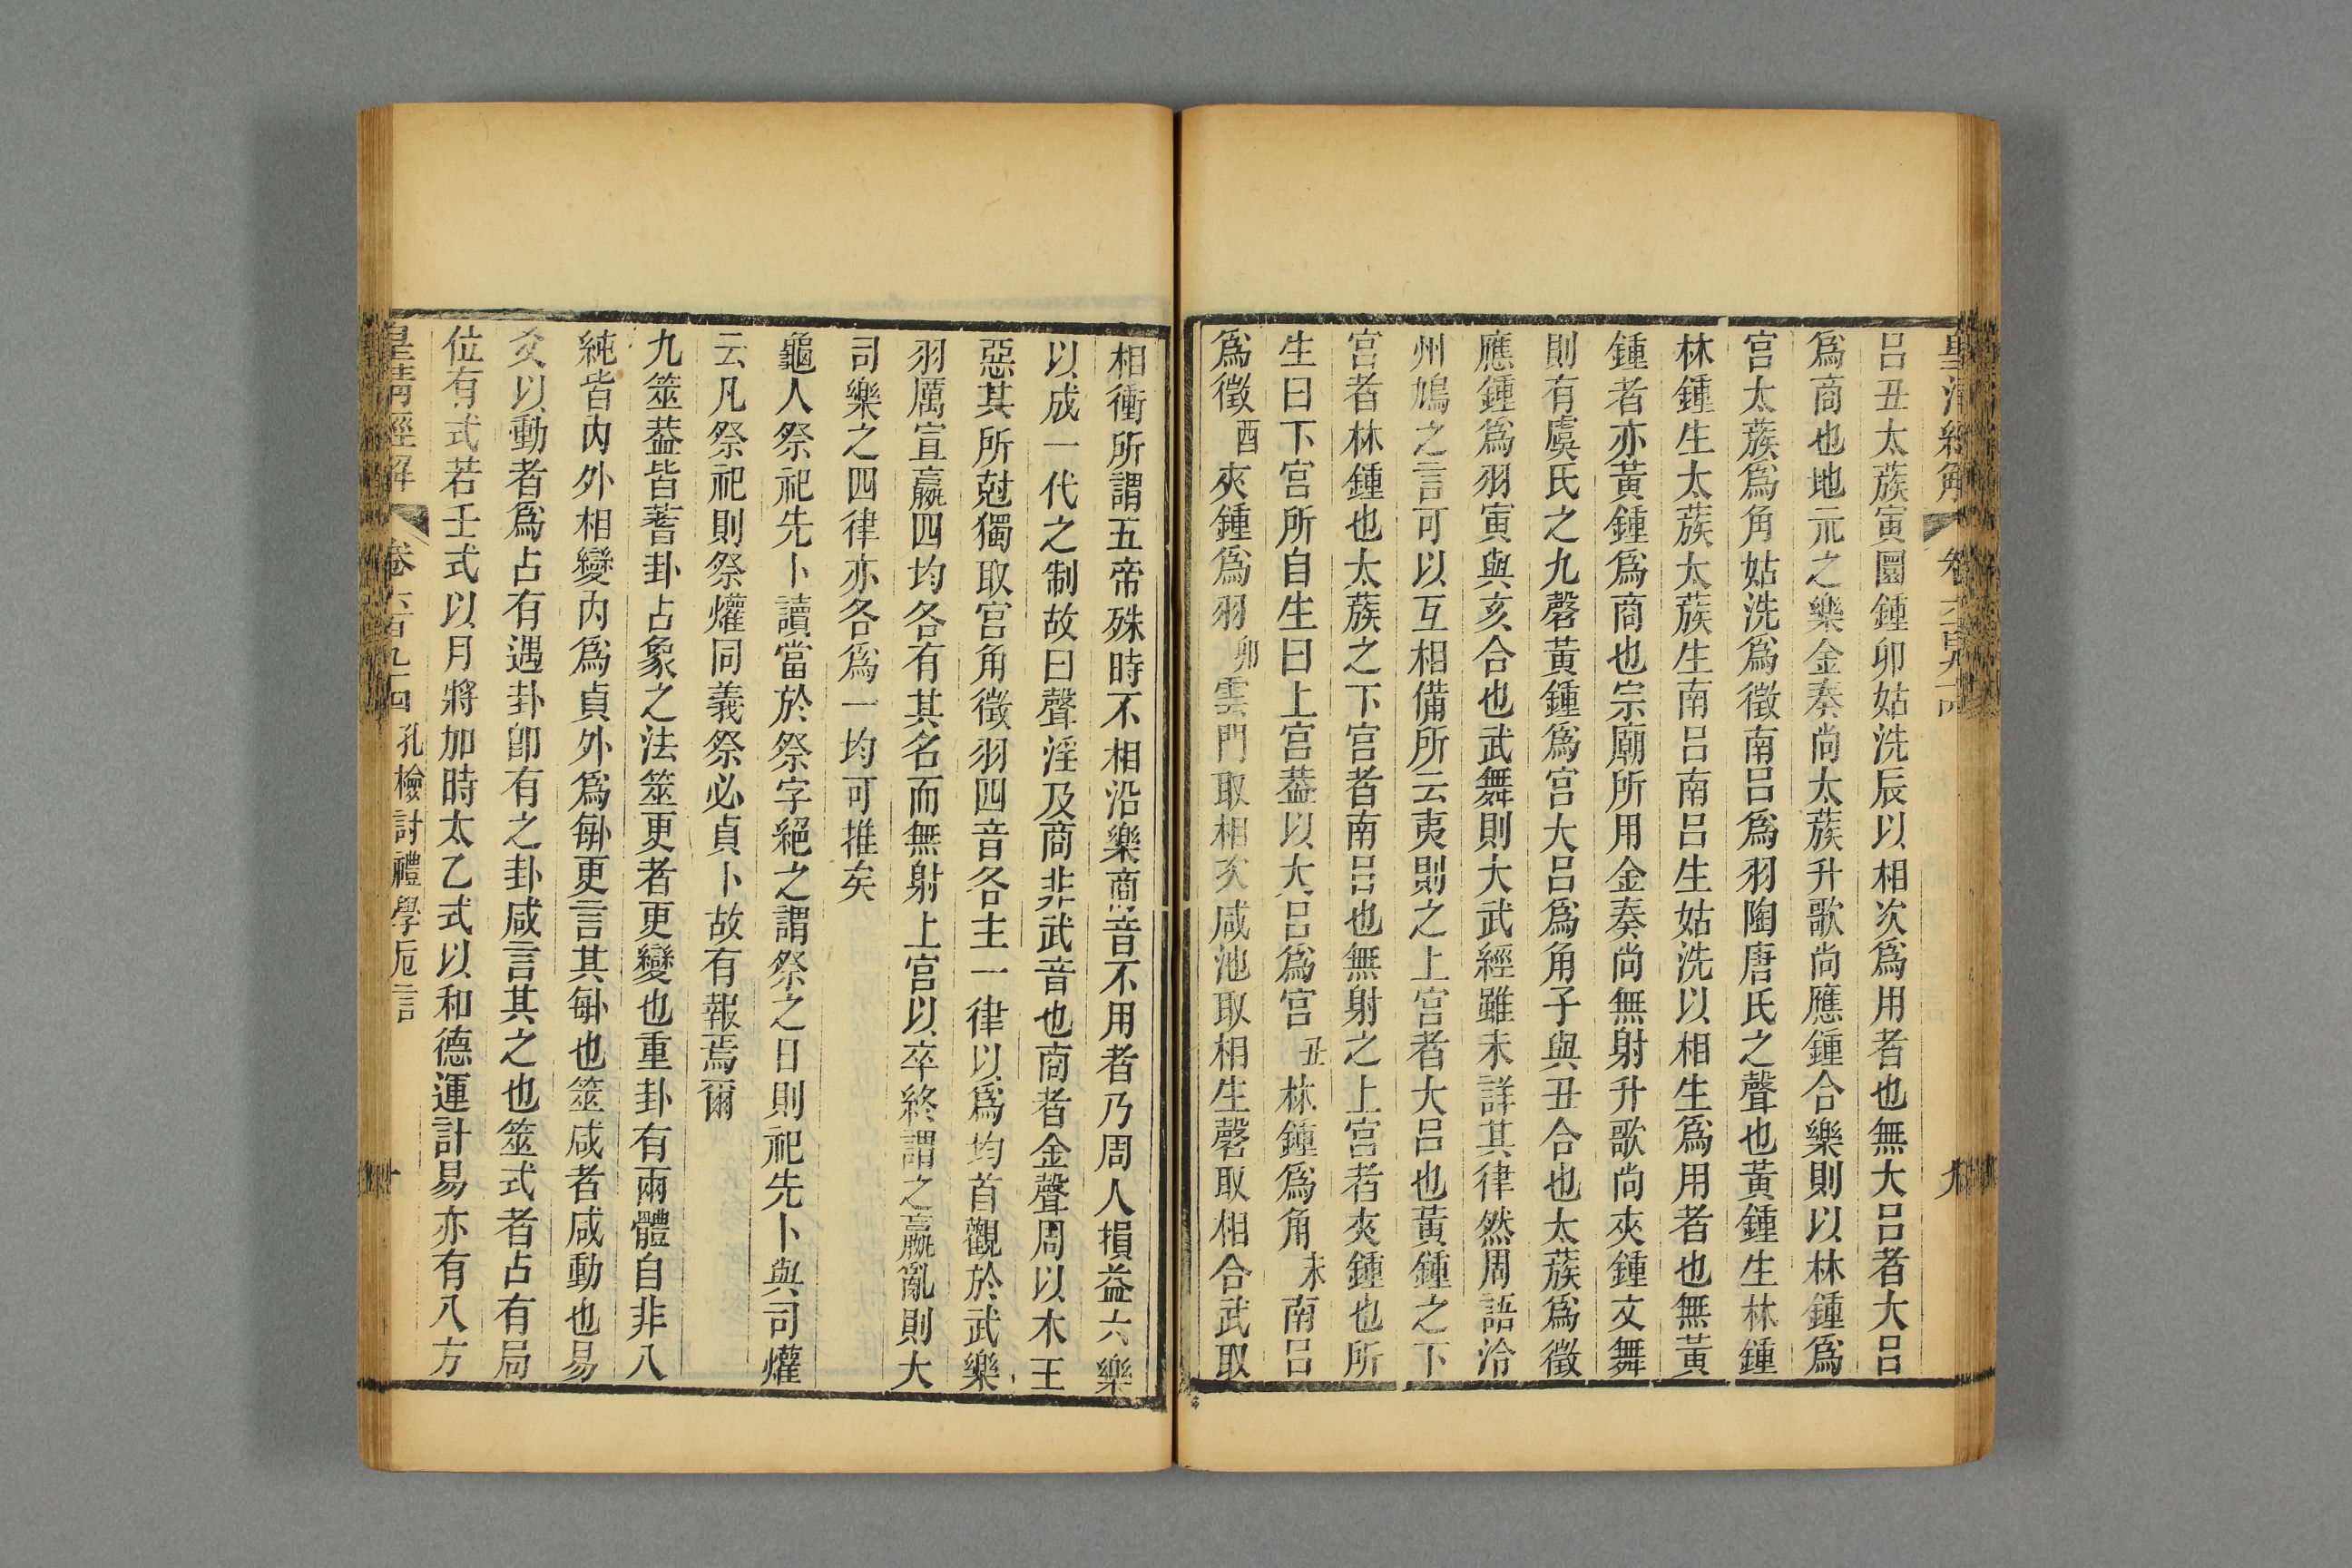 呂丑太蔟寅圜鍾卯姑洗辰以相次爲用者也無大呂者大呂
爲商也地示之樂金奏尚太蔟升歌尚應鍾合樂則以林鍾爲
宮太蔟爲角姑洗爲徵南呂爲羽陶唐氏之聲也黃鍾生林鍾
林鍾生太蔟太蔟生南呂南呂生姑洗以相生爲用者也無黃
鍾者亦黃鍾爲商也宗廟所用金奏尚無射升歌尚夾鍾文舞
則有虞氏之九磬黃鍾爲宮大呂爲角子與丑合也太蔟爲徵
應鍾爲羽寅與亥合也武舞則大武經雖未詳其律然周語泠
州鳩之言可以互相備所云夷則之上宮者大呂也黃鍾之下
宮者林鍾也太蔟之下宮者南呂也無射之上宮者夾鍾也所
生曰下宮所自生曰上宮葢以大呂爲宮丑林鍾爲角未南呂
爲徵酉夾鍾爲羽卯雲門取相次咸池取相生磬取相合武取
相衝所謂五帝殊時不相沿樂商音不用者乃周人損益六樂
以成一代之制故曰聲淫及商非武音也商者金聲周以木王
惡其所尅獨取宮角徵羽四音各主一律以爲均首觀於武樂
羽厲宣嬴四均各有其名而無射上宮以卒終謂之嬴亂則大
司樂之四律亦各爲一均可推矣
龜人祭祀先卜讀當於祭字絕之謂祭之日則祀先卜與司爟
云凡祭祀則祭爟同義祭必貞卜故有報焉爾
九筮葢皆蓍卦占象之法筮更者更變也重卦有兩體自非八
純皆內外相變內爲貞外爲𠧩更言其𠧩也筮咸者咸動也易
爻以動者爲占有遇卦卽有之卦咸言其之也筮式者占有局
位有式若壬式以月將加時太乙式以和德運計易亦有八方
皇清經解 卷六百九十四 孔檢討禮學卮言 十